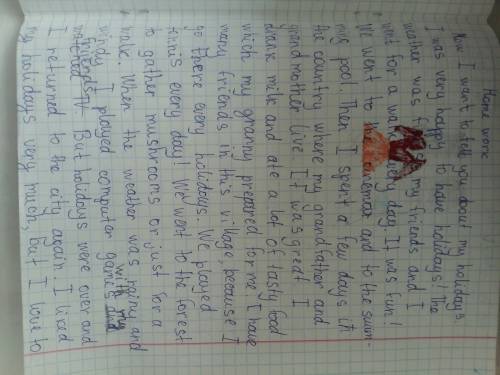 Home work
Now I want to tell you about my holidays
I was very happy to have holidays! The
weather was my friends and I
went for a every day It was fun!
We went to the cinema and to the swim-
ming pool. Then I spent a few days in
the country where my grandfather and
grandmother live It was great I
drank milk and ate a lot of tasty food
which my granny prepared for me I have
many friends in this village, because I
go there every holidays. We played
tennis every day! We went to the forest
to gather mushrooms or just for a
walk. When the weather was rainy and
windy I played computer games with my
friends But holidays were over and
I returned to the city again I liked
my holidays very much, but I love to